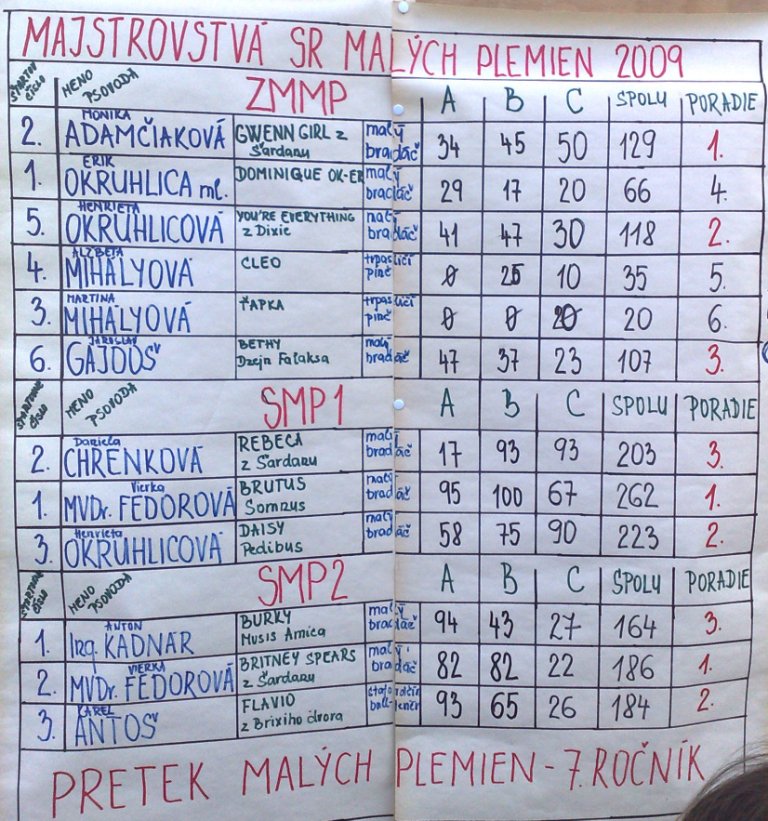 MAJSTROVSTVÁ SR MALÝCH PLEMIEN 2009
ŠTARTOV. ČÍSLO MENO PSOVODA ZMMP A B C SPOLU PORADIE
2. MONIKA ADAMČIAKOVÁ GWENN GIRL z Šardanu malý bradáč 34 45 50 129 1.
1. ERIK OKRUHLICA ml. DOMINIQUE OK-ER malý bradáč 29 17 20 66 4.
5. HENRIETA OKRUHLICOVÁ YOU'RE EVERYTHING z Dixie malý bradáč 41 47 30 118 2.
4. ALŽBETA MIHÁLYOVÁ CLEO trpasličí pinč 0 25 10 35 5.
3. MARTINA MIHÁLYOVÁ ŤAPKA trpasličí pinč 0 0 20 20 6.
6. JAROSLAV GAJDOŠ BETHY Dzejn Falaksa malý bradáč 47 37 23 107 3.
ŠTARTOVNÉ ČÍSLO MENO PSOVODA SMP1 A B C SPOLU PORADIE
2. Daniela CHRENKOVÁ REBECA z Šardanu malý bradáč 17 93 93 203 3.
1. Vierka MVDr. FEDOROVÁ BRUTUS Somzus malý bradáč 95 100 67 262 1.
3. Henrieta OKRUHLICOVÁ DAISY Pedibus malý bradáč 58 75 90 223 2.
ŠTARTOVNÉ ČÍSLO MENO PSOVODA SMP2 A B C SPOLU PORADIE
1. ANTON Ing. KADNÁR BURKY Musis Amica malý bradáč 94 43 27 164 3.
2. VIERKA MVDr. FEDOROVÁ BRITNEY SPEARS z Šardanu malý bradáč 82 82 22 186 1.
3. KAREL ANTOŠ FLAVIO z Brixiho dvora 93 65 26 184 2.
PRETEK MALÝCH PLEMIEN - 7. ROČNÍK